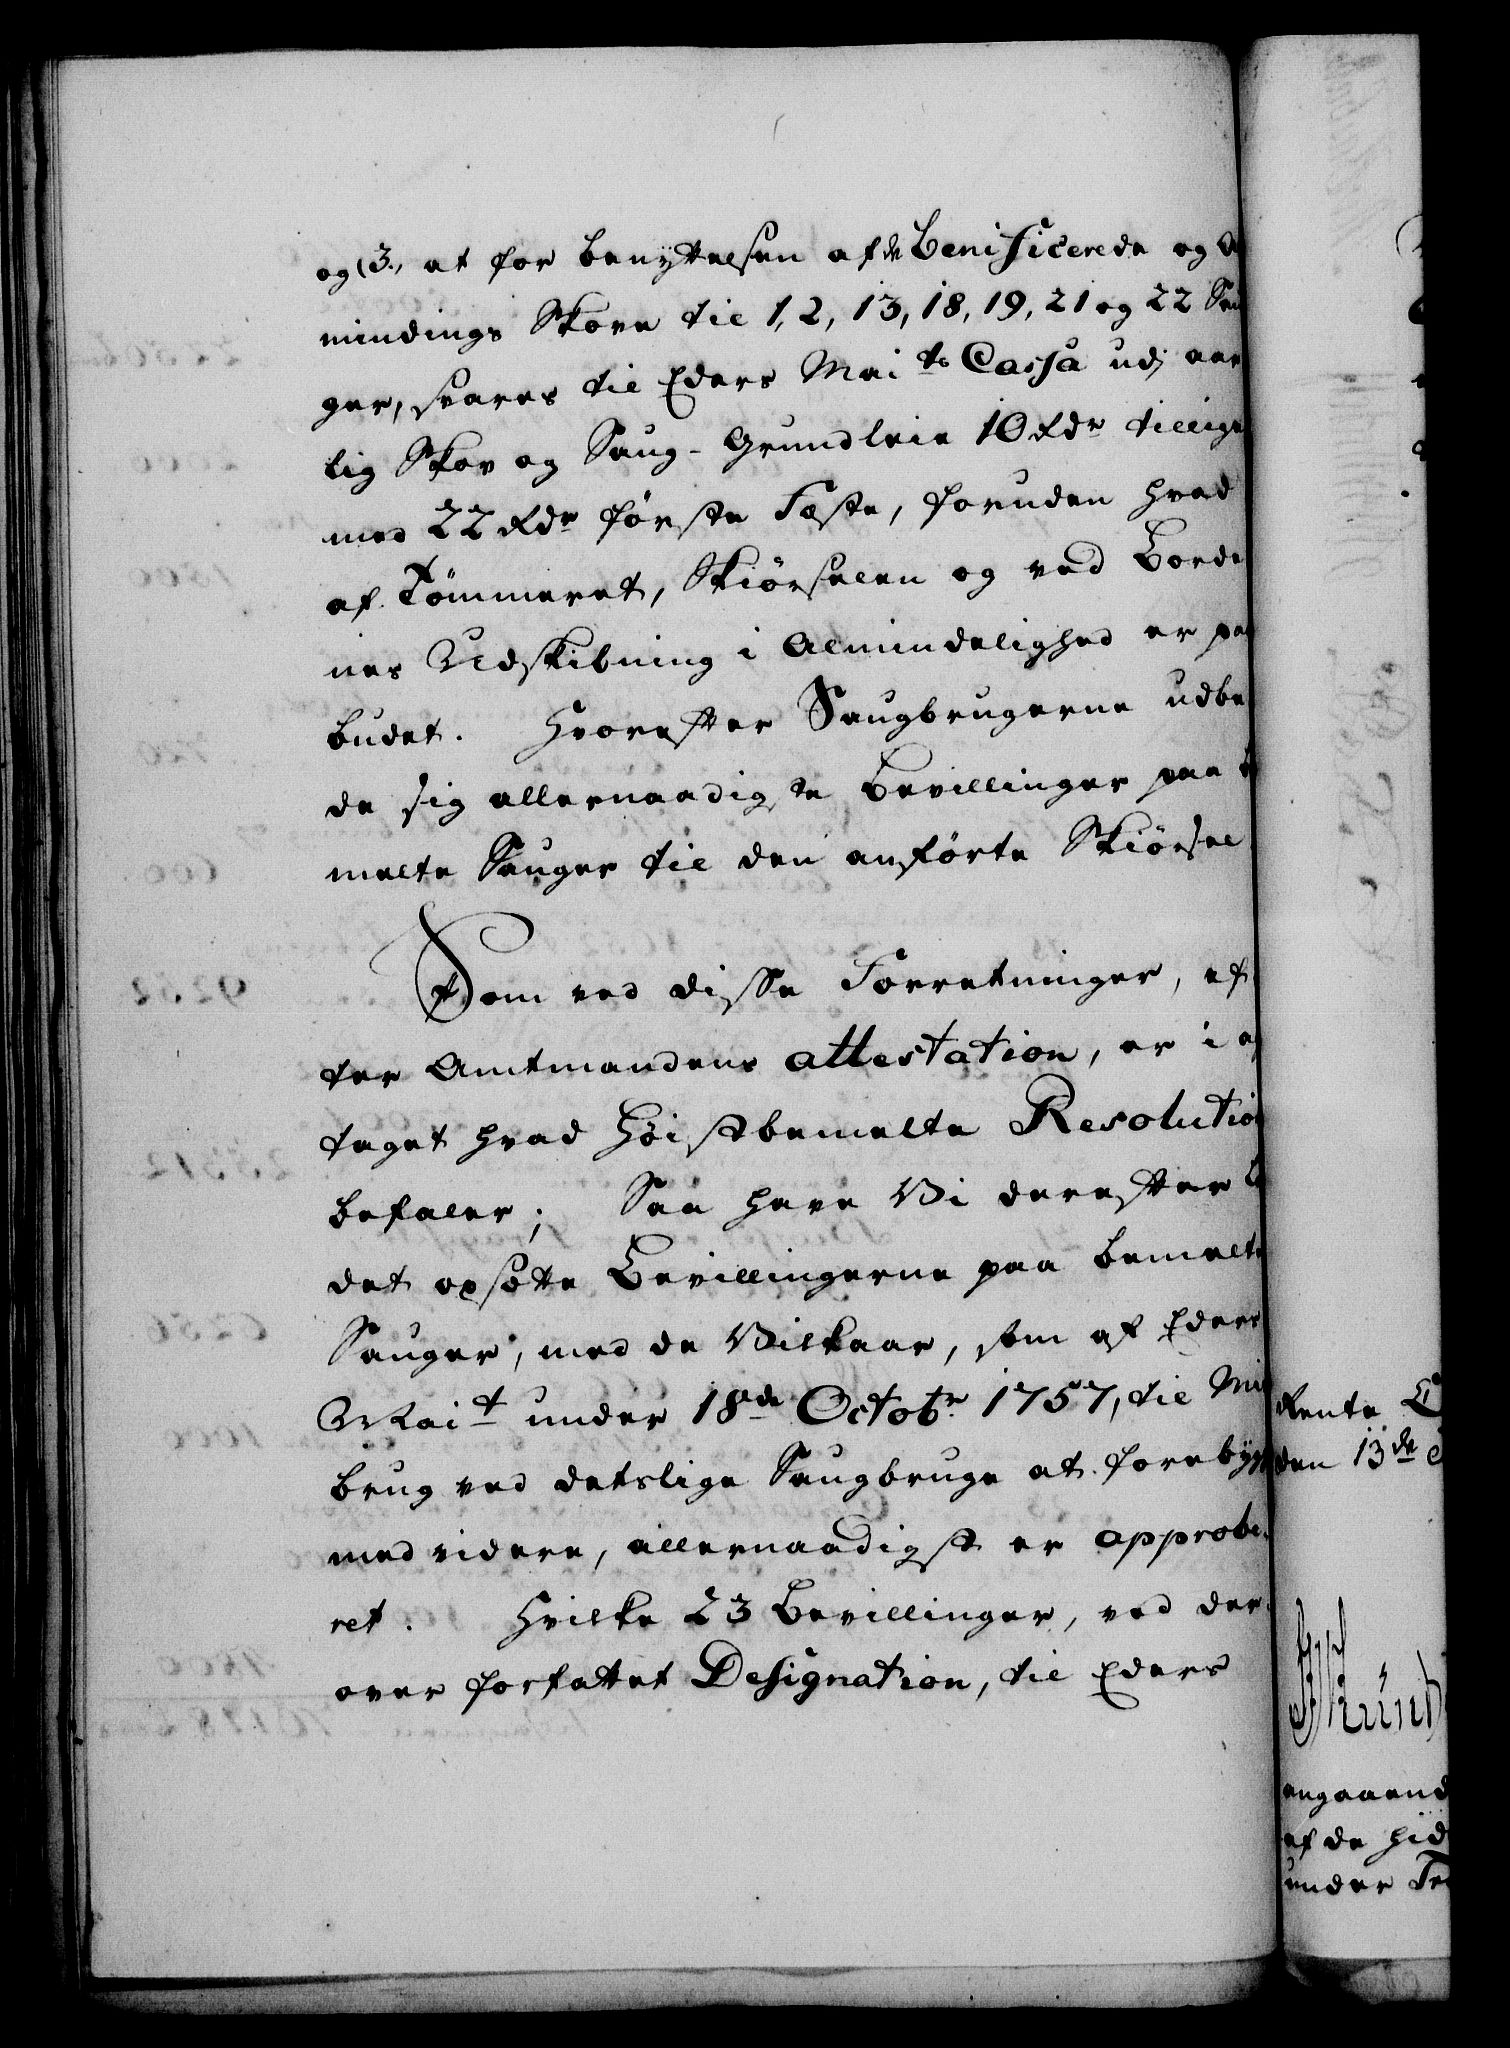 og (3., at for benyttelsen af de Benificerede og
mindings Skove til 1, 2, 13, 18, 19, 21 og 22 Sau
ger, svares til Eders Mai ts Cassa udj aar
lig Skov og Saug-Grundleie 10 Rdr tillige
med 22 Rdr første Fæste, foruden hvad
af Tømmeret, Skiørselen og ved Borde
nes Udskibning i Almindelighed er paa
budet. Hvorefter Saugbrugerne udbe
de sig allernaadigste Bevillinger paa
melte Sauger til den anførte Skiørsel
Som ved disse Forretninger, ef
ter Amtmandens attestation, er i
taget hvad Høistbemelte Resolution
befaler; Saa have Vi derefter
det opsette Bevillingerne paa bemelte
Sauger, med de Vilkaar, som af Eders
Mait under 18de Octobr 1757, til Mis
brug ved detslige Saugbruge at forebygge
med videre, allernaadigst er approbe-
ret. Hvilke 23 Bevillinger, ved der-
over forfattet Designation, til Eders
Rente
den 13de
angaaend
af de hid
under Tr